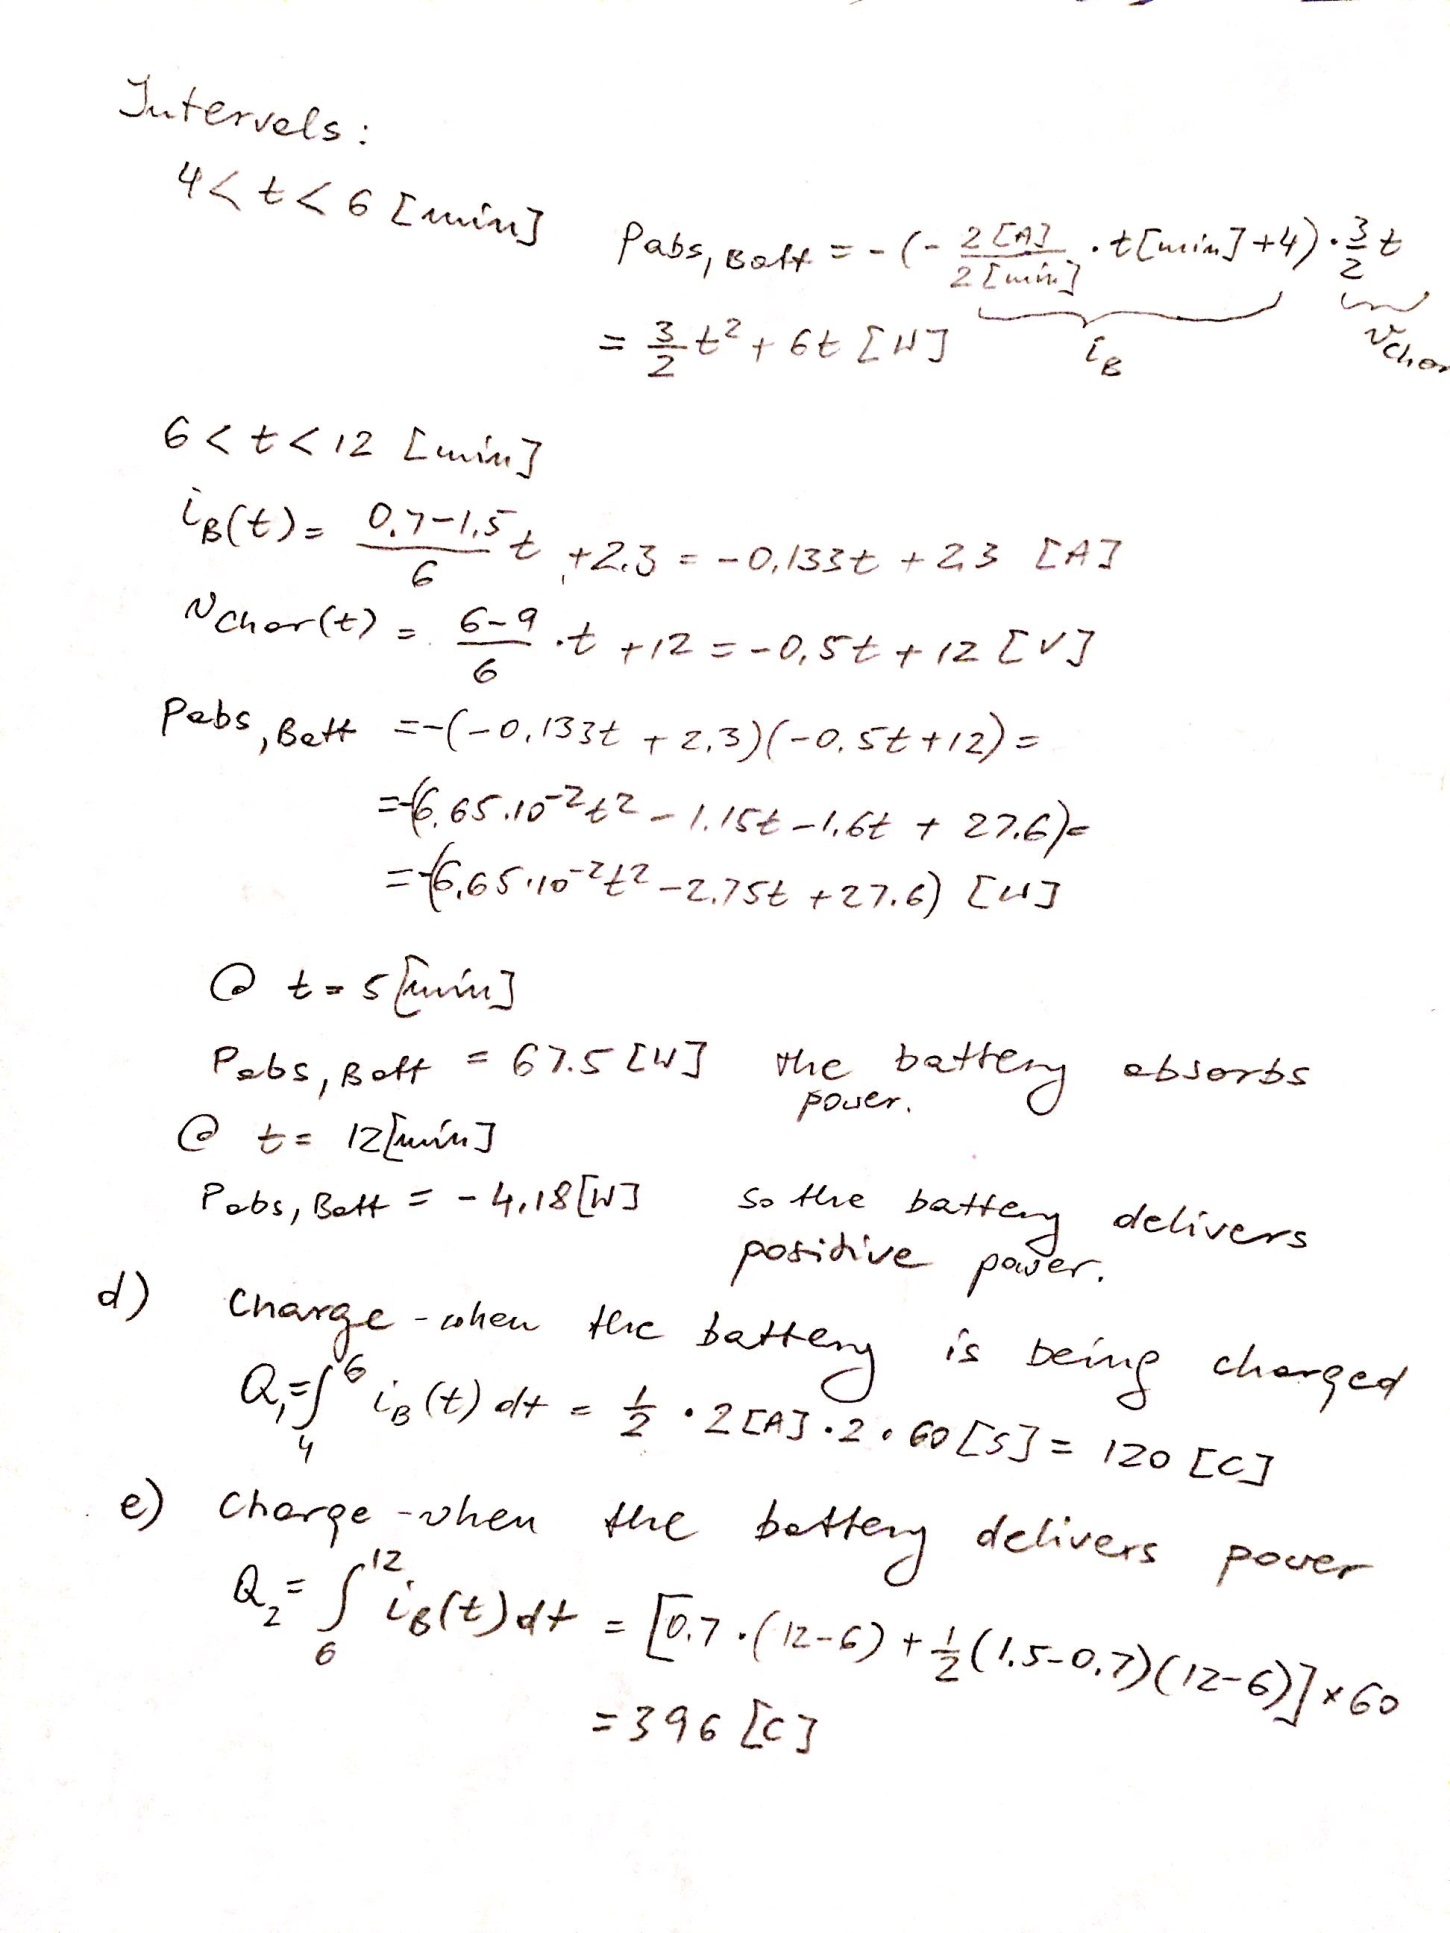 Intervals:
4 < t < 6 [min]
Pabs, Batt = -(- 2 [A] / 2 [min] · t[min] + 4) · 3/2 t
iB
vchar
= 3/2 t² + 6t [W]
6 < t < 12 [min]
iB(t) = 0.7-1.5 / 6 t + 2.3 = -0,133t + 2,3 [A]
vchar(t) = 6-9 / 6 · t + 12 = -0,5t + 12 [V]
Pabs, Batt = -(-0,133t + 2,3)(-0.5t+12) =
= -(6.65.10⁻²t² - 1.15t - 1.6t + 27.6) =
= -(6,65·10⁻²t² - 2.75t + 27.6) [W]
@ t = 5 [min]
Pabs, Batt = 67.5 [W] the battery absorbs
power.
@ t = 12 [min]
Pabs, Batt = - 4,18 [W] so the battery delivers
positive power.
d) Charge - when the battery is being charged
Q₁ = ∫₄⁶ iB(t) dt = 1/2 · 2 [A] · 2 · 60 [s] = 120 [C]
e) Charge - when the battery delivers power
Q₂ = ∫₆¹² iB(t) dt = [0.7 · (12-6) + 1/2 (1.5-0.7)(12-6)] × 60
= 396 [C]